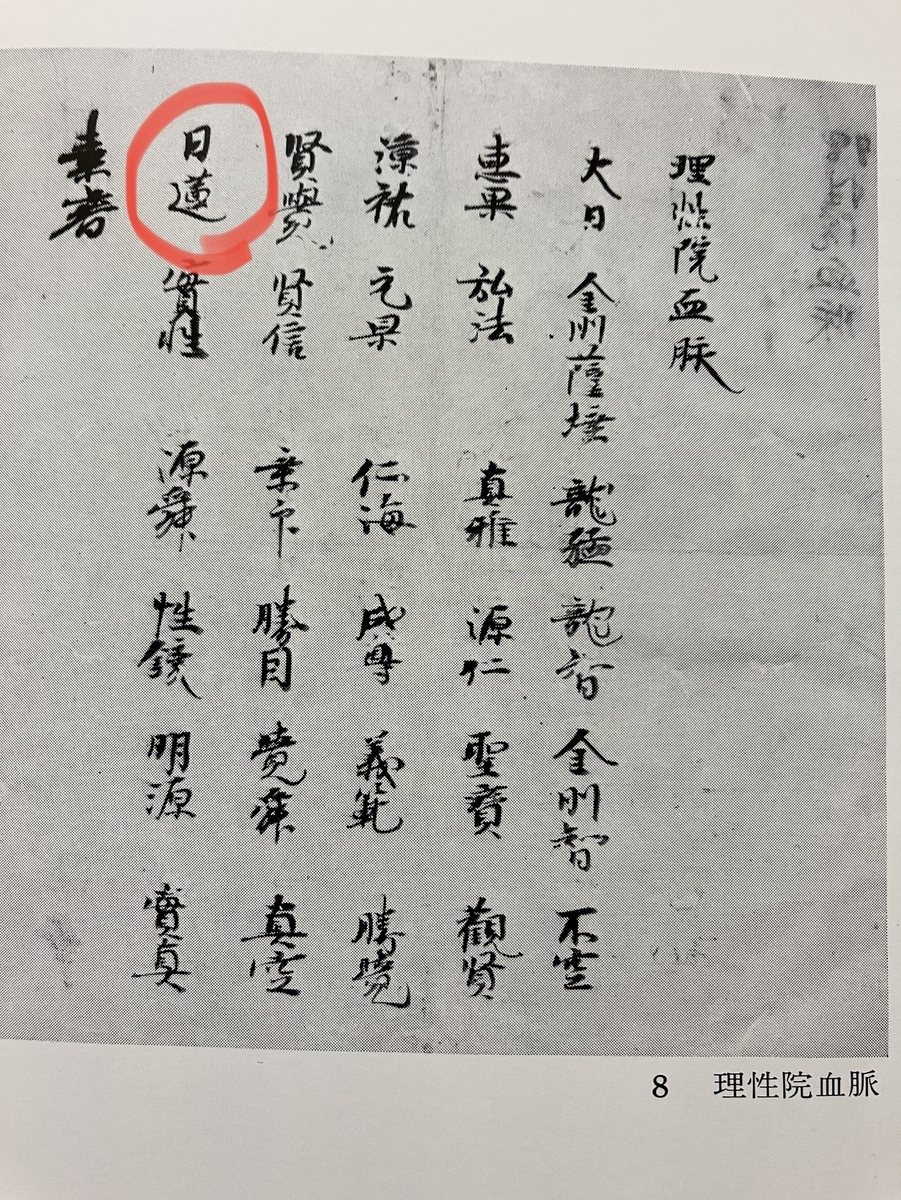 理性院血脉
大日 金剛薩埵 龍猛 龍智 金剛智 不空
惠果 弘法 真雅 源仁 聖寳 觀賢
淳祐 元杲 仁海 成尊 義範 勝覺
賢覺 賢信 宗命 勝目 覺濟 真空
日蓮 實性 源舜 性鏡 明源 實真
素睿
8 理性院血脈